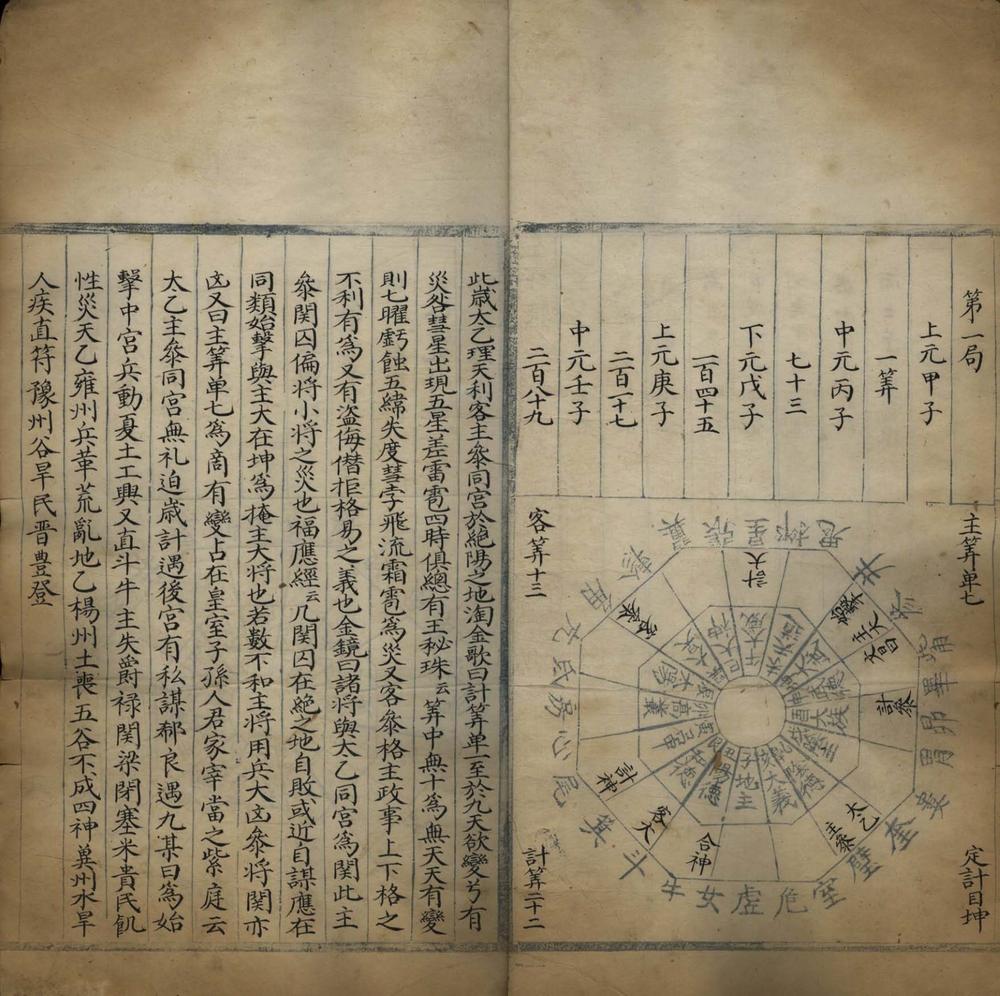 第一局
上元甲子
一筭
中元丙子
七十三
下元戊子
一百四十五
上元庚子
二百一十七
中元壬子
二百八十九
主筭单七
定計目坤
客筭十三
計筭二十二
計大
始擊
主大
計神
客大
合神
太乙
主叅
客叅
計叅
井
觜
畢
昴
胃
婁
奎
壁
室
危
虛
女
牛
斗
箕
尾
心
房
氐
亢
翼
張
星
柳
鬼
此歲太乙理天利客主叅同宮於絶陽之地淘金歌曰計筭单一至於九天欲變兮有
災咎彗星出現五星差雷雹四時俱總有王秘珠云筭中無十為無天天有變
則七曜虧蝕五緯失度彗孛飛流霜雹爲災又客叅格主政事上下格之
不利有爲又有盜侮僣拒格易之義也金鏡曰諸將與太乙同宮為関此主
叅関囚偏將小將之災也福應經云凢関囚在絶之地自敗或近自謀應在
同類始擊與主大在坤為掩主大將也若數不和主將用兵大凶叅將関亦
凶又曰主筭单七爲商有變占在皇室子孫人君家宰當之紫庭云
太乙主叅同宮無礼迫歲計遇後宮有私謀郗良遇九某曰爲始
擊中宮兵動憂土工興又直斗牛主失爵禄関梁閉塞米貴民飢
性災天乙雍州兵革荒亂地乙楊州土喪五谷不成四神兾州水旱
人疾直符豫州谷旱民晋豊登